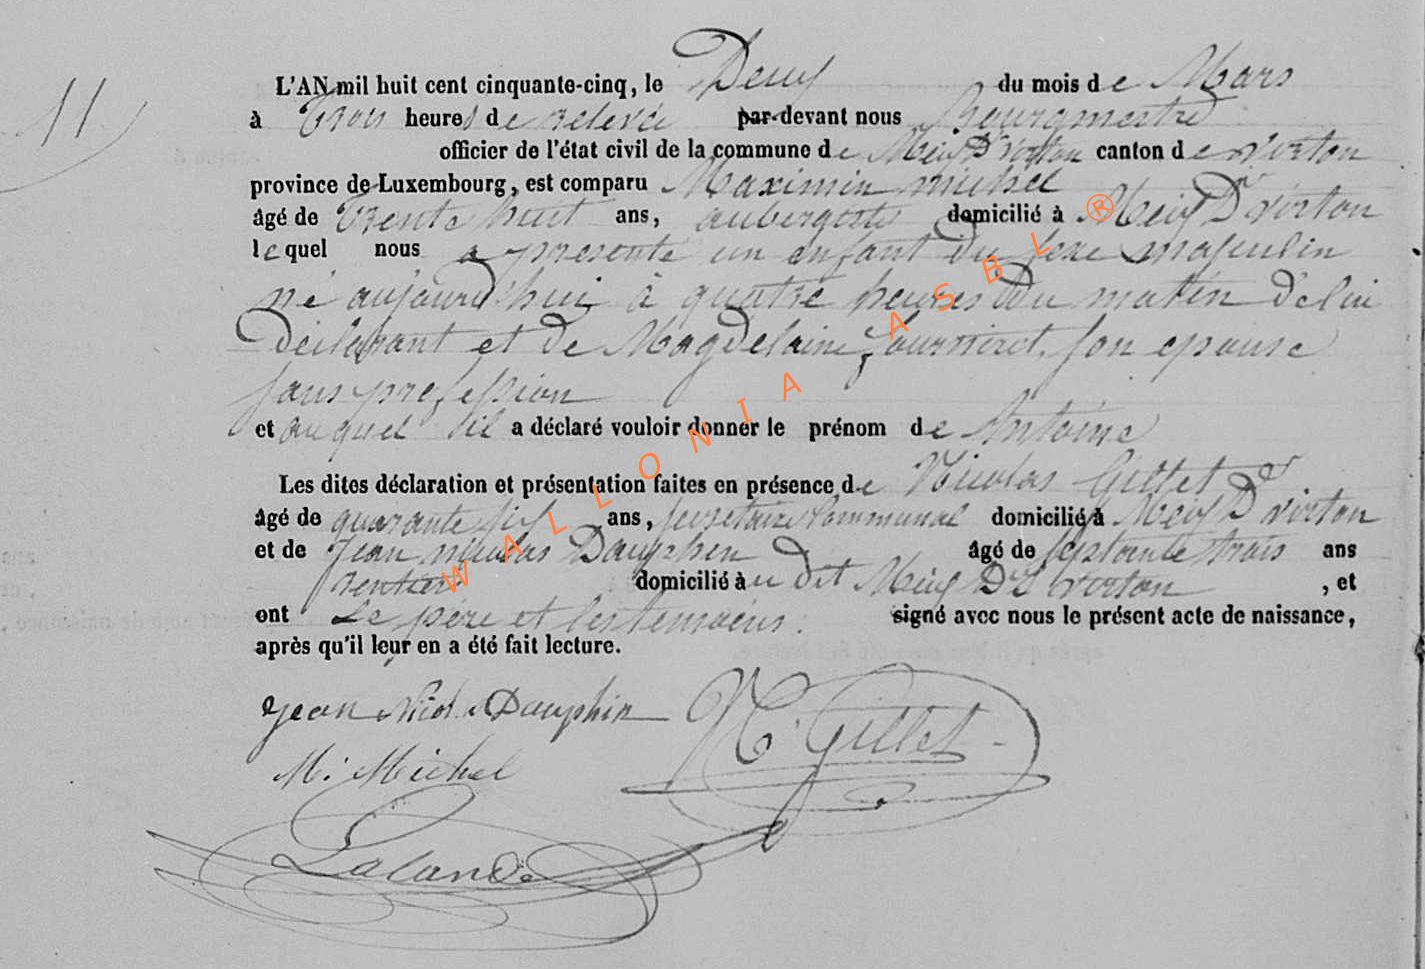 11
L'AN mil huit cent cinquante-cinq, le Deux du mois de Mars
à Trois heures de relevée par-devant nous bourgmestre
officier de l'état civil de la commune de Meix Dt virton canton de virton
province de Luxembourg, est comparu Maximin michel
âgé de Trente huit ans, aubergiste domicilié à Meix Dt virton
lequel nous a présenté un enfant du sexe masculin
né aujourd'hui à quatre heures du matin de lui
déclarant et de Magdelaine son epouse
sans profession
et auquel il a déclaré vouloir donner le prénom de Antoine
Les dites déclaration et présentation faites en présence de Nicolas Gillet
âgé de quarante six ans, secretaire Communal domicilié à Meix Dt virton
et de Jean nicolas Dauphin âgé de septante trois ans
rentier domicilié au dit Meix Dt virton , et
ont Le père et les temoins signé avec nous le présent acte de naissance,
après qu'il leur en a été fait lecture.
Jean Nicol. Dauphin N. Gillet
M. Michel
Lalande
WALLONIA ASBL ®